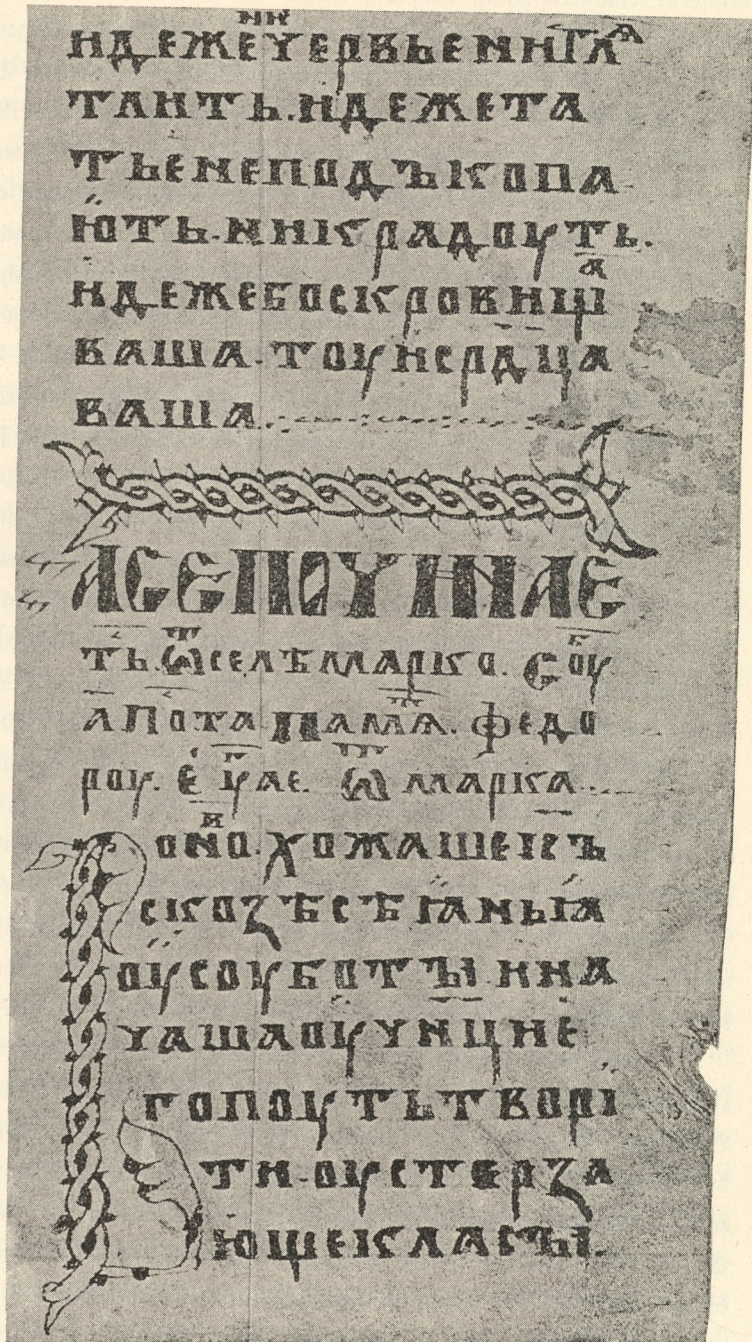 идежениѹервьенитлѧ
тлить.идежета
тьенеподъкопа
ють.никрадоуть.
идежебоскровища
ваша.тоуисрдца
ваша
Асепоучнае
ть.ѿселѣмарко.Соу
а по та памѧ. федо
роу. е҃ ѿ марка
оно.хожашеіс҃ъ
сквозѣсѣꙗньꙗ
оусоуботꙑ.ина
чашаоучнцие
гопоутьтворі
ти.оустерза
ющекласꙑ.